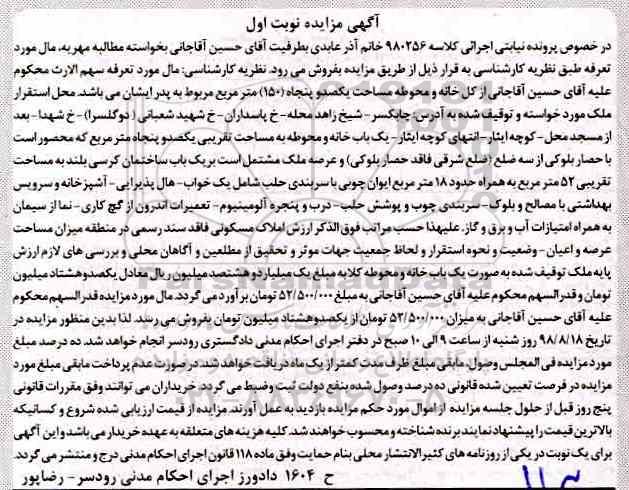 آگهی مزایده نوبت اول
در خصوص پرونده نیابتی اجرائی کلاسه ۹۸۰۲۵۶ خانم آذر عابدی بطرفیت آقای حسین آقاجانی بخواسته مطالبه مهریه، مال مورد
تعرفه طبق نظریه کارشناسی به قرار ذیل از طریق مزایده بفروش می رود. نظریه کارشناسی: مال مورد تعرفه سهم الارث محکوم
علیه آقای حسین آقاجانی از کل خانه و محوطه مساحت یکصدو پنجاه (۱۵۰) متر مربع مربوط به پدر ایشان می باشد. محل استقرار
ملک مورد خواسته و توقیف شده به آدرس: چابکسر- شیخ زاهد محله- خ پاسداران- خ شهید شعبانی (دوگلسرا)- خ شهدا- بعد
از مسجد محل- کوچه ایثار- انتهای کوچه ایثار- یک باب خانه و محوطه به مساحت تقریبی یکصدو پنجاه متر مربع که محصور است
با حصار بلوکی از سه ضلع (ضلع شرقی فاقد حصار بلوکی) و عرصه ملک مشتمل است بر یک باب ساختمان کرسی بلند به مساحت
تقریبی ۵۲ متر مربع به همراه حدود ۱۸ متر مربع ایوان چوبی با سربندی حلب شامل یک خواب- هال پذیرایی- آشپزخانه و سرویس
بهداشتی با مصالح و بلوک- سربندی چوب و پوشش حلب- درب و پنجره آلومینیوم- تعمیرات اندرون از گچ کاری- نما از سیمان
به همراه امتیازات آب و برق و گاز. علیهذا حسب مراتب فوق الذکر ارزش املاک مسکونی فاقد سند رسمی در منطقه میزان مساحت
عرصه و اعیان- وضعیت و نحوه استقرار و لحاظ جمعیت جهات موثر و تحقیق از مطلعین و آگاهان محلی و بررسی های لازم ارزش
پایه ملک توقیف شده به صورت یک باب خانه و محوطه کلابه مبلغ یک میلیارد و هشتصد میلیون ریال معادل یکصدوهشتاد میلیون
تومان و قدرالسهم محکوم علیه آقای حسین آقاجانی به مبلغ ۵۲/۵۰۰/۰۰۰ تومان برآورد می گردد. مال مورد مزایده قدرالسهم محکوم
علیه آقای حسین آقاجانی به میزان ۵۲/۵۰۰/۰۰۰ تومان از یکصدوهشتاد میلیون تومان بفروش می رسد. لذا بدین منظور مزایده در
تاریخ ۹۸/۸/۱۸ روز شنبه از ساعت ۹ الی ۱۰ صبح در دفتر اجرای احکام مدنی دادگستری رودسر انجام خواهد شد. ده درصد مبلغ
مورد مزایده فی المجلس وصول، مابقی مبلغ ظرف مدت کمتر از یک ماه دریافت خواهد شد. در صورت عدم پرداخت مابقی مبلغ مورد
مزایده در فرصت تعیین شده قانونی ده درصد وصول شده بنفع دولت ثبت وضبط می گردد. خریداران می توانند وفق مقررات قانونی
پنج روز قبل از حلول جلسه مزایده از اموال مورد حکم مزایده بازدید به عمل آورند. مزایده از قیمت ارزیابی شده شروع و کسانیکه
بالاترین قیمت را پیشنهاد نمایند برنده شناخته و محسوب خواهند شد. کلیه هزینه های متعلقه به عهده خریدار می باشد و این آگهی
برای یک نوبت در یکی از روزنامه های کثیرالانتشار محلی بنام حمایت وفق ماده ۱۱۸ قانون اجرای احکام مدنی درج و منتشر می گردد.
ح ۱۶۰۴ دادورز اجرای احکام مدنی رودسر- رضاپور